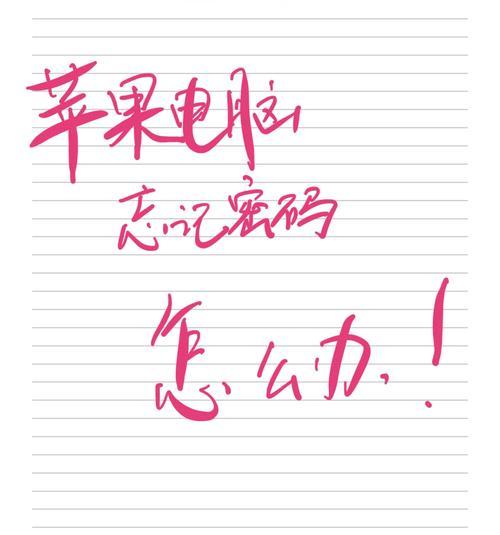 苹果电脑
忘记密码
怎么办!